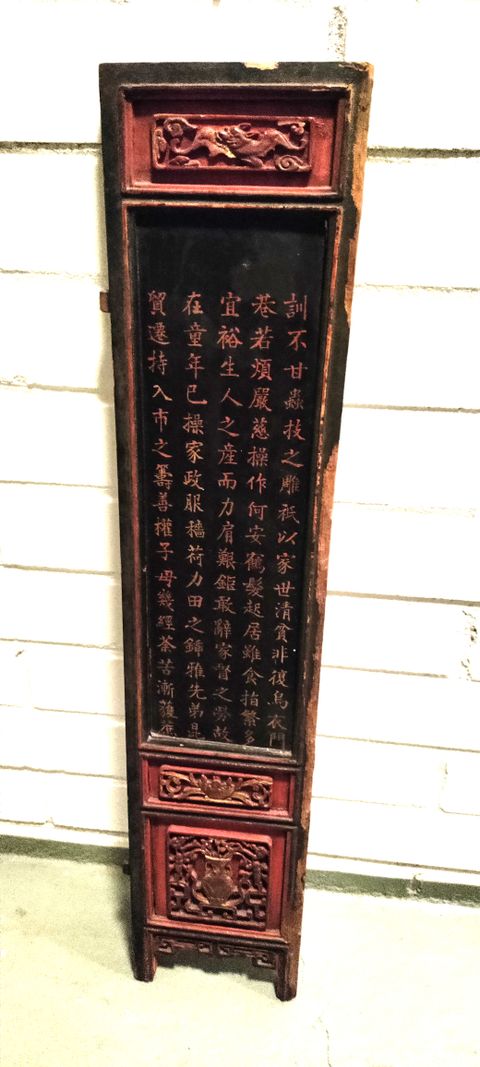 訓不甘蟲技之雕祇以家世清貧非復烏衣門
巷若煩嚴慈操作何安鶴髮起居雖食指繁多
宜裕生人之產而力肩艱鉅敢辭家督之勞故
在童年已操家政服穡荷力田之鍤雅先弟昆
貿遷持入市之籌善權子母幾經荼苦漸獲